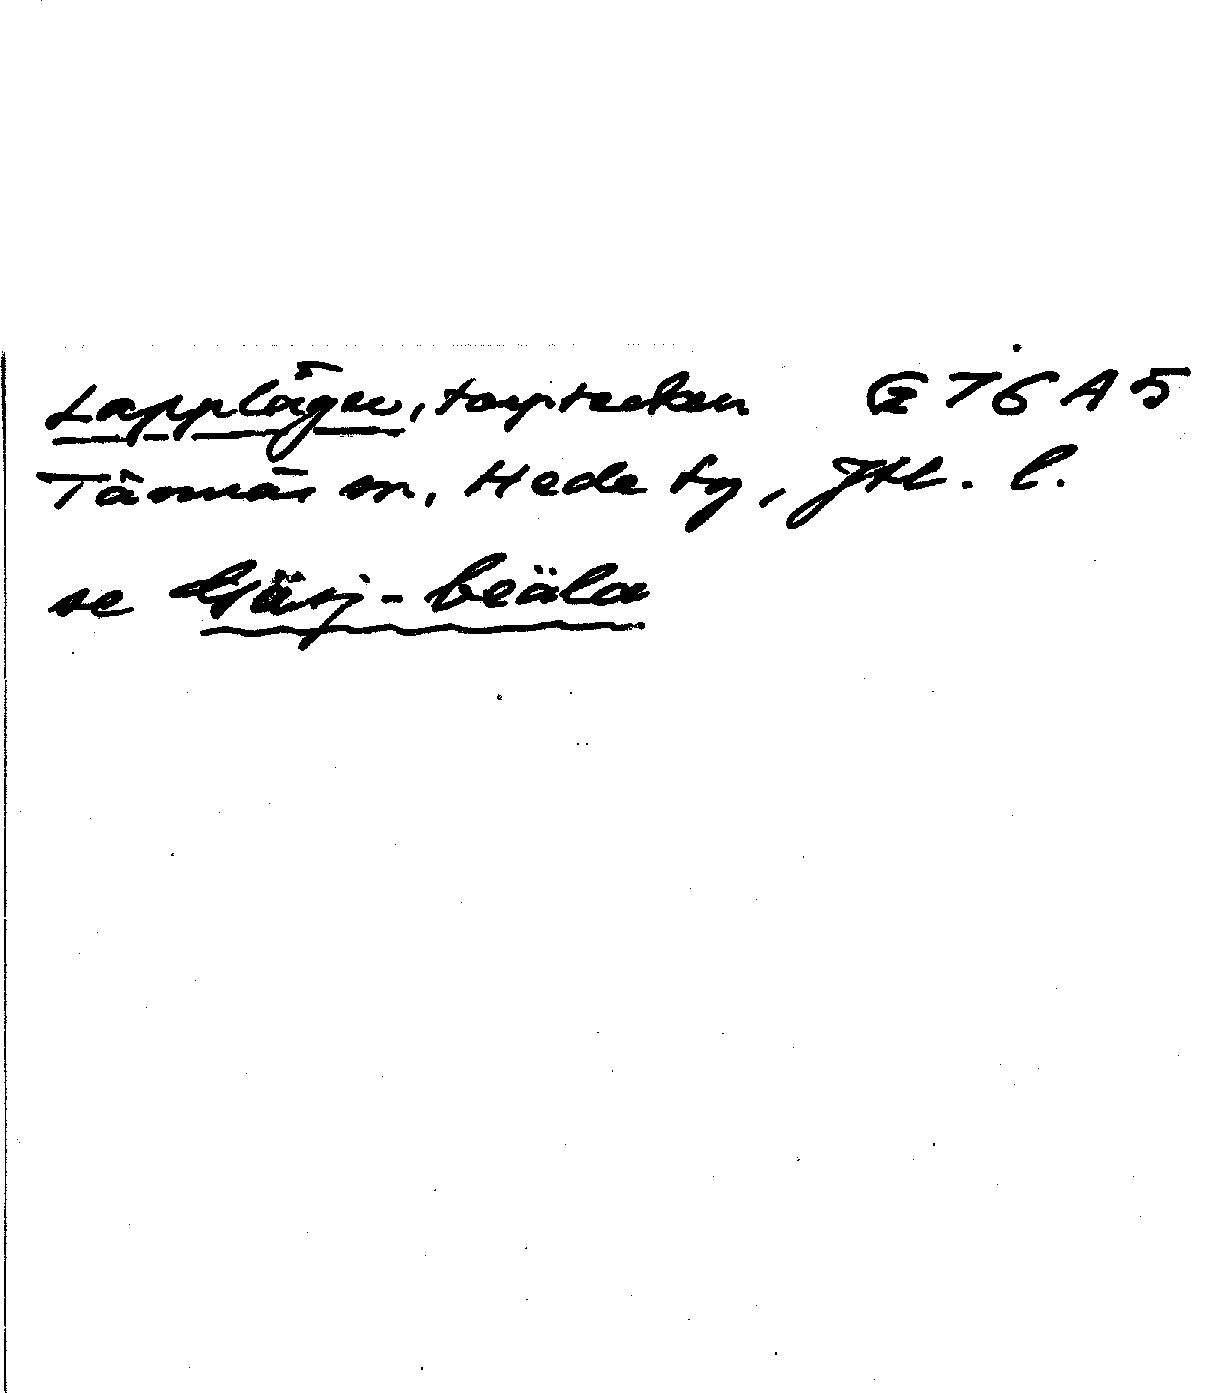 Lappläger, torptecken G 76 A 5
Tännäs sn, Hede tg, Jtl. l.
se Gärj-beäla